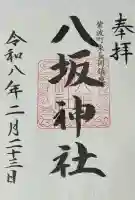 奉拝
八坂神社
令和八年二月二十三日